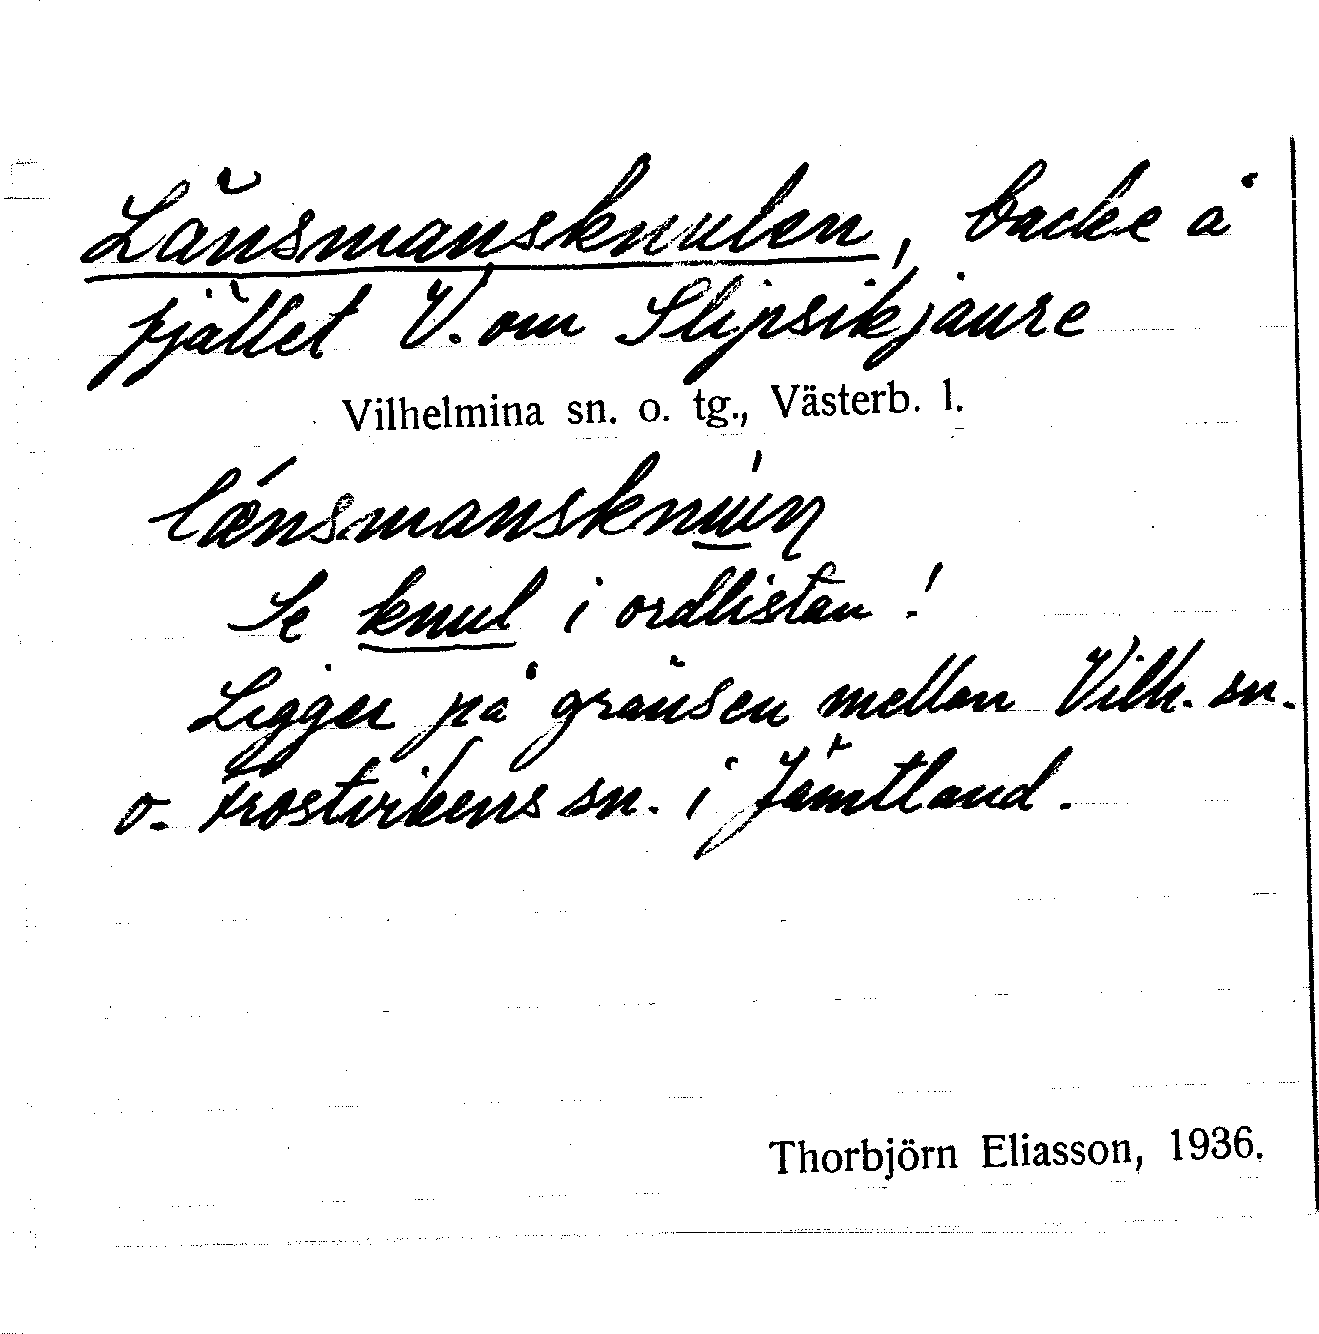 Länsmansknulen, backe å
fjället V. om Slipsikjaure
Vilhelmina sn. o. tg., Västerb. l.
Se knul i ordlistan!
Ligger på gränsen mellan Vilh. sn.
o. Frostvikens sn. i Jämtland.
Thorbjörn Eliasson, 1936.